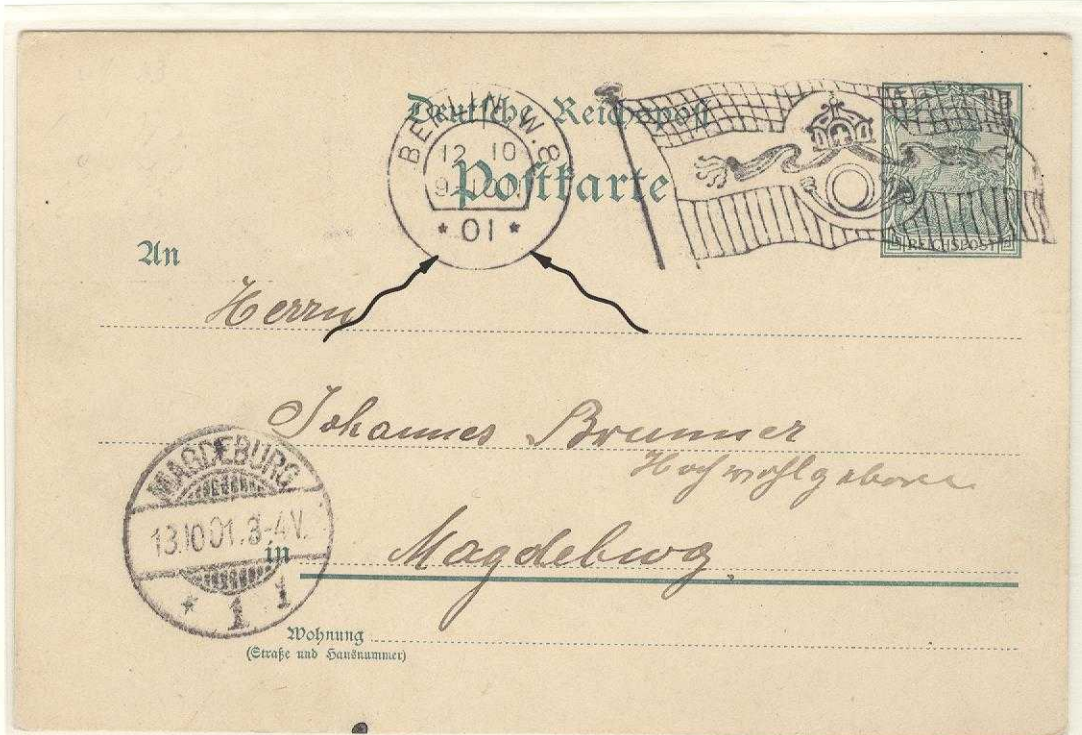 Deutsche Reichspost
BERLIN W. 8
12 10
Postkarte
* 01 *
5 5
REICHSPOST
An
Herrn
Johannes Brunner
Hochwohlgeboren
MAGDEBURG
13.10.01. 3-4V.
* 1 1
in Magdeburg.
Wohnung
(Straße und Hausnummer)